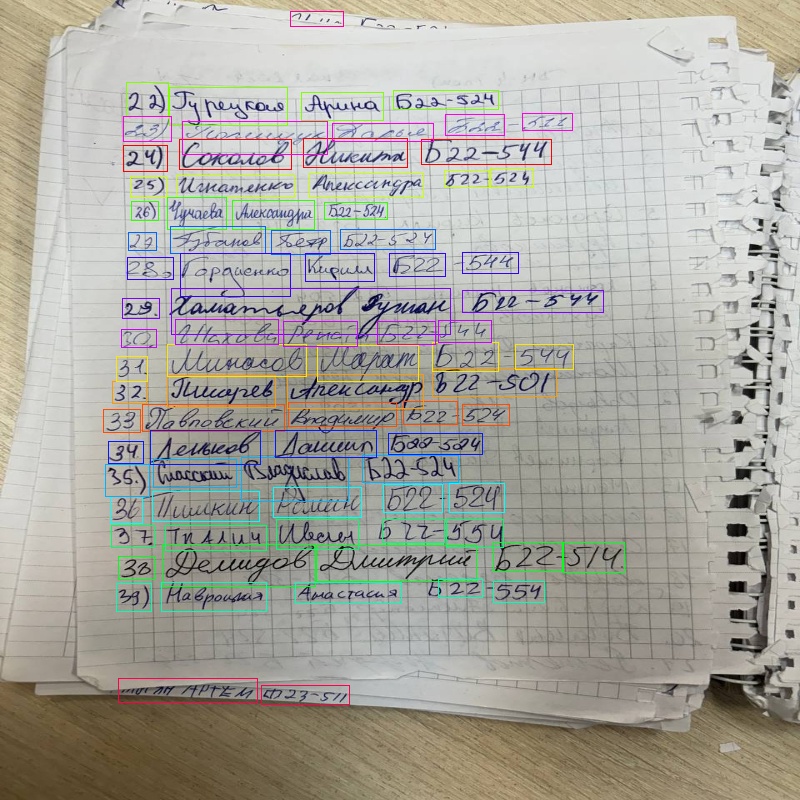 22) Турецкая Арина Б22-524
23) Дарья Б22
24) Соколов Никита Б22-544
25) Игнатенко Александра Б22-524
26) Чучаева Александра Б22-524
27 Губанов Петр Б22-524
28. Гордиенко Кирилл Б22-544
29. Хаматьяров Рушан Б22-544
30. Рената Б22-544
31. Минасов Марат Б22-544
32. Писарев Александр Б22-501
33 Павловский Владимир Б22-524
34. Леньков Даниил Б22-524
35.) Спасский Владислав Б22-524
36 Пишкин Роман Б22-524
37. Ткалич Б22-554
38 Демидов Дмитрий Б22-514.
39) Навроцкая Анастасия Б22-554
АРТЕМ 23-511